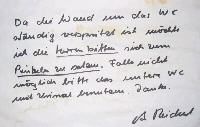 Da die Wand um das WC
ständig verspritzt ist möchte
ich die Herren bitten sich zum
Pinkeln zu setzen. Falls nicht
möglich bitte das untere WC
auf Zimmer benutzen. Danke.